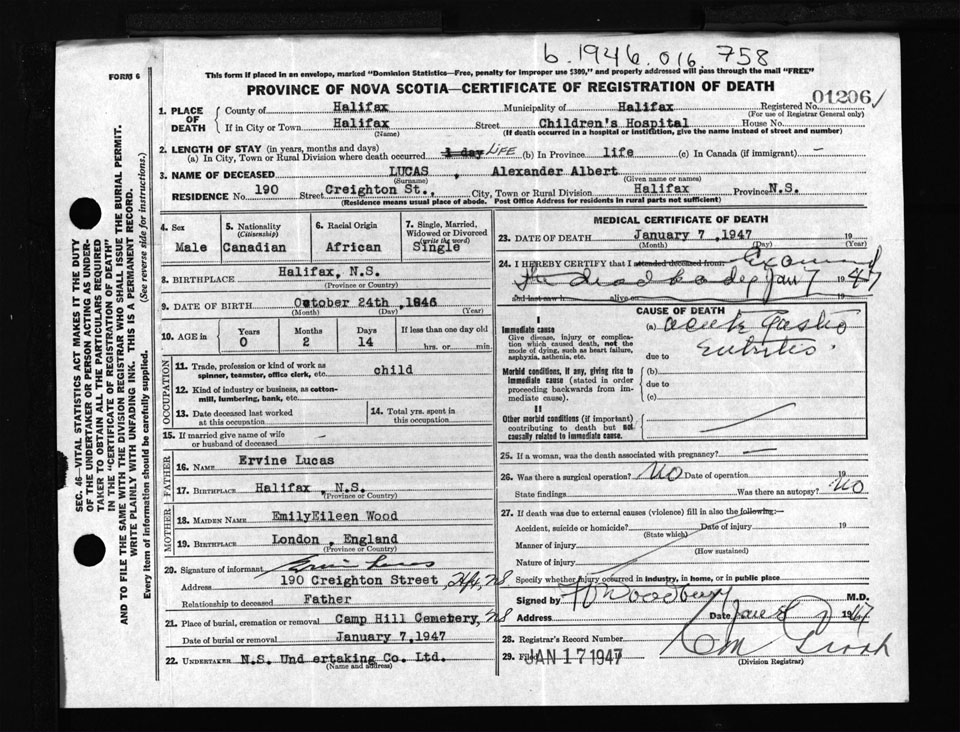 b.1946.016.758
FORM 6
This form if placed in an envelope, marked "Dominion Statistics—Free, penalty for improper use $300," and properly addressed will pass through the mail "FREE"
PROVINCE OF NOVA SCOTIA—CERTIFICATE OF REGISTRATION OF DEATH
01206
1. PLACE OF DEATH
County of Halifax Municipality of Halifax Registered No.
(For use of Registrar General only)
If in City or Town Halifax Street Children's Hospital House No.
(Name) (If death occurred in a hospital or institution, give the name instead of street and number)
2. LENGTH OF STAY (in years, months and days)
(a) In City, Town or Rural Division where death occurred 1 day LIFE (b) In Province life (c) In Canada (if immigrant) —
3. NAME OF DECEASED LUCAS , Alexander Albert
(Surname) (Given name or names)
RESIDENCE No. 190 Street Creighton St., City, Town or Rural Division Halifax Province N.S.
(Residence means usual place of abode. Post Office Address for residents in rural parts not sufficient)
4. Sex Male
5. Nationality (Citizenship) Canadian
6. Racial Origin African
7. Single, Married, Widowed or Divorced (write the word) Single
8. BIRTHPLACE Halifax, N.S.
(Province or Country)
9. DATE OF BIRTH October 24th ,1946
(Month) (Day) (Year)
10. AGE in Years 0 Months 2 Days 14 If less than one day old
hrs. or min.
OCCUPATION
11. Trade, profession or kind of work as spinner, teamster, office clerk, etc. child
12. Kind of industry or business, as cotton-mill, lumbering, bank, etc.
13. Date deceased last worked at this occupation
14. Total yrs. spent in this occupation
15. If married give name of wife or husband of deceased —
FATHER
16. NAME Ervine Lucas
17. BIRTHPLACE Halifax , N.S.
(Province or Country)
MOTHER
18. MAIDEN NAME EmilyEileen Wood
19. BIRTHPLACE London , England
(Province or Country)
20. Signature of informant Ervin Lucas
Address 190 Creighton Street , Hfx, NS
Relationship to deceased Father
21. Place of burial, cremation or removal Camp Hill Cemetery, NS
Date of burial or removal January 7,1947
22. UNDERTAKER N.S. Und ertaking Co. Ltd.
(Name and address)
MEDICAL CERTIFICATE OF DEATH
23. DATE OF DEATH January 7 ,1947 19
(Month) (Day) (Year)
24. I HEREBY CERTIFY that I attended deceased from Examined
the dead body Jan 7 1947
and last saw h alive on
CAUSE OF DEATH
I
Immediate cause
Give disease, injury or complication which caused death, not the mode of dying, such as heart failure, asphyxia, asthenia, etc.
(a) acute Gastro
Enteritis.
due to
Morbid conditions, if any, giving rise to immediate cause (stated in order proceeding backwards from immediate cause).
(b)
due to
(c)
II
Other morbid conditions (if important) contributing to death but not causally related to immediate cause.
25. If a woman, was the death associated with pregnancy? —
26. Was there a surgical operation? No Date of operation 19
State findings Was there an autopsy? No
27. If death was due to external causes (violence) fill in also the following:—
Accident, suicide or homicide? Date of injury 19
(State which)
Manner of injury
(How sustained)
Nature of injury
Specify whether injury occurred in industry, in home, or in public place
Signed by Woodbury M.D.
Address Date Jan 8 1947
28. Registrar's Record Number
29. Filed JAN 17 1947
(Division Registrar)
SEC. 46—VITAL STATISTICS ACT MAKES IT THE DUTY
OF THE UNDERTAKER OR PERSON ACTING AS UNDER-
TAKER TO OBTAIN ALL THE PARTICULARS REQUIRED
IN THE "CERTIFICATE OF REGISTRATION OF DEATH"
AND TO FILE THE SAME WITH THE DIVISION REGISTRAR WHO SHALL ISSUE THE BURIAL PERMIT.
WRITE PLAINLY WITH UNFADING INK. THIS IS A PERMANENT RECORD.
Every item of information should be carefully supplied. (See reverse side for instructions.)